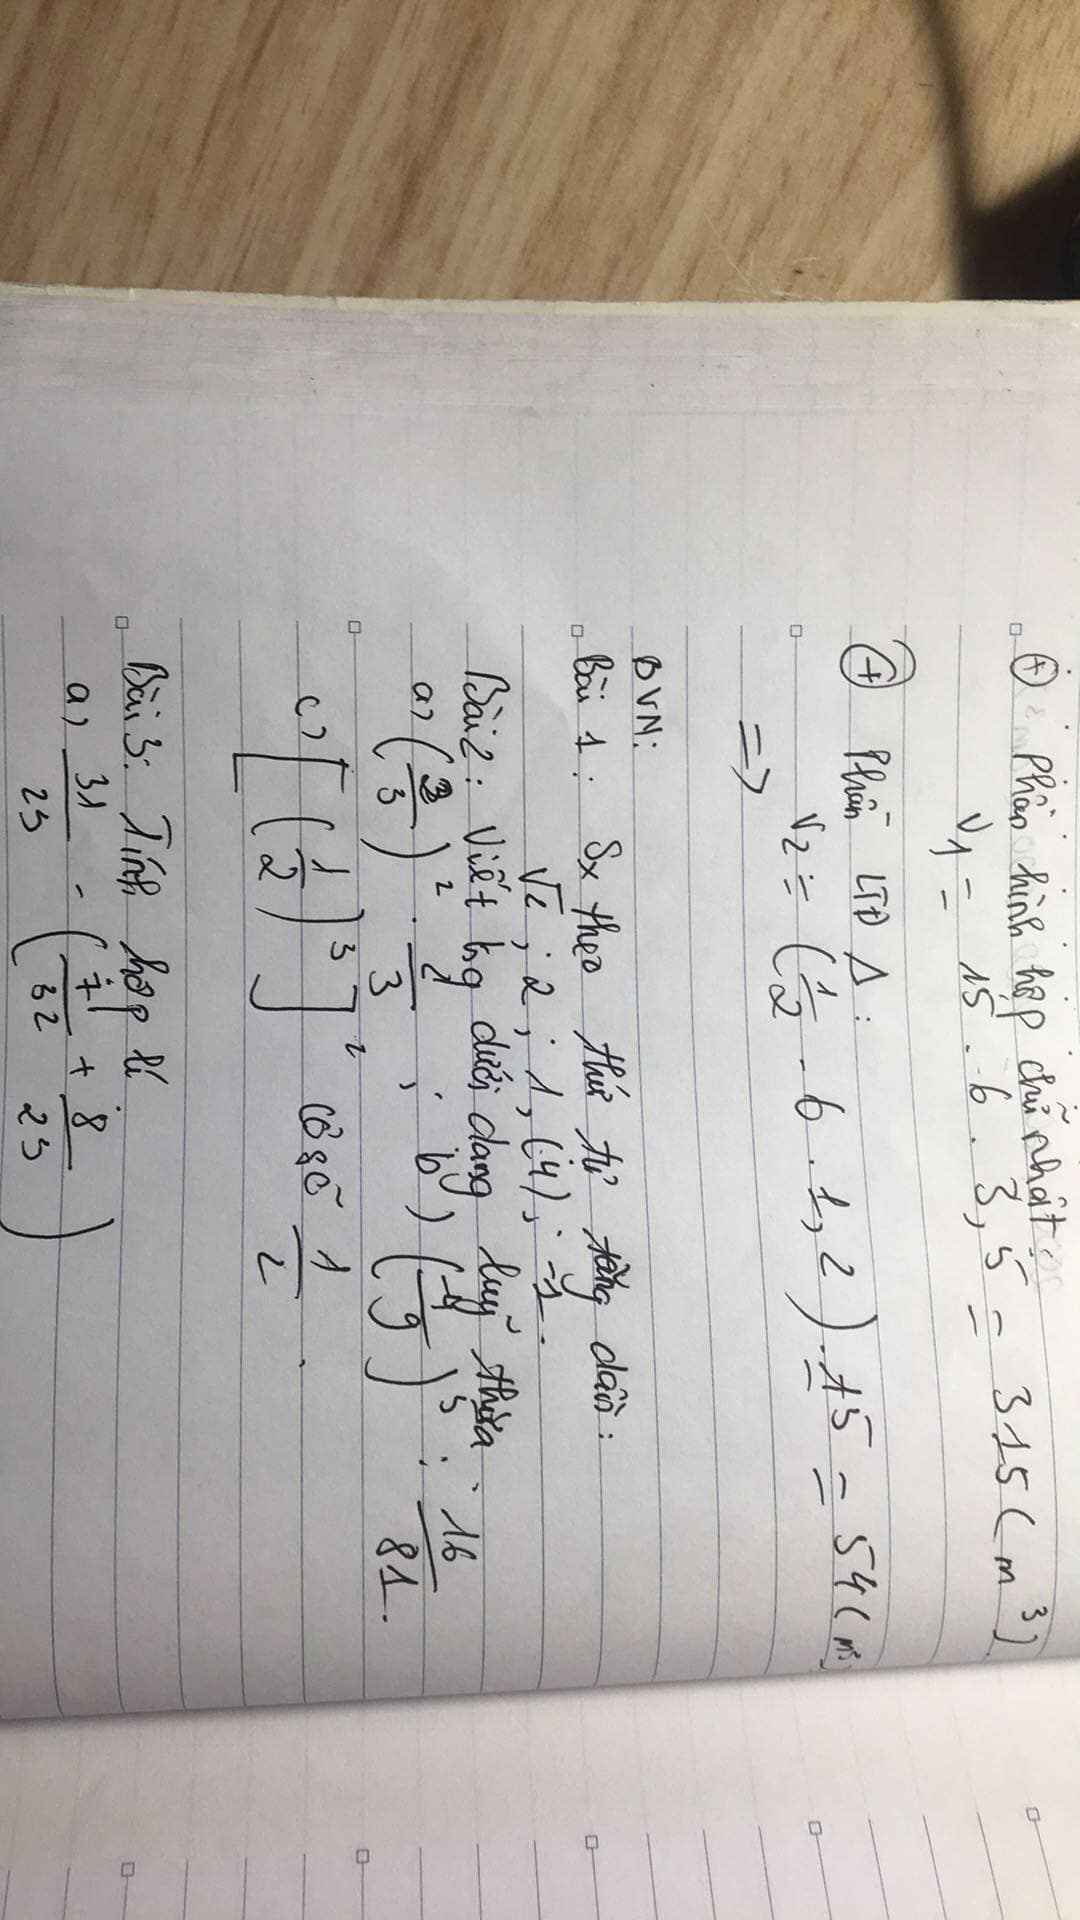 + Phần hình hộp chữ nhật:
V1 = 15 . 6 . 3,5 = 315 (m³)
+ Phần LTĐ Δ:
V2 = (1/2 . 6 . 1,2) . 15 = 54 (m³)
=>
BVN:
Bài 1: Sx theo thứ tự tăng dần:
√2; 2; 1,(4); -1.
Bài 2: Viết kq dưới dạng luỹ thừa
a) (2/3)² . 2/3; b) (-4/9)⁵ : 16/81.
c) [(1/2)³]² Cơ số 1/2.
Bài 3: Tính hợp lí
a) 31/23 - (7/32 + 8/23)